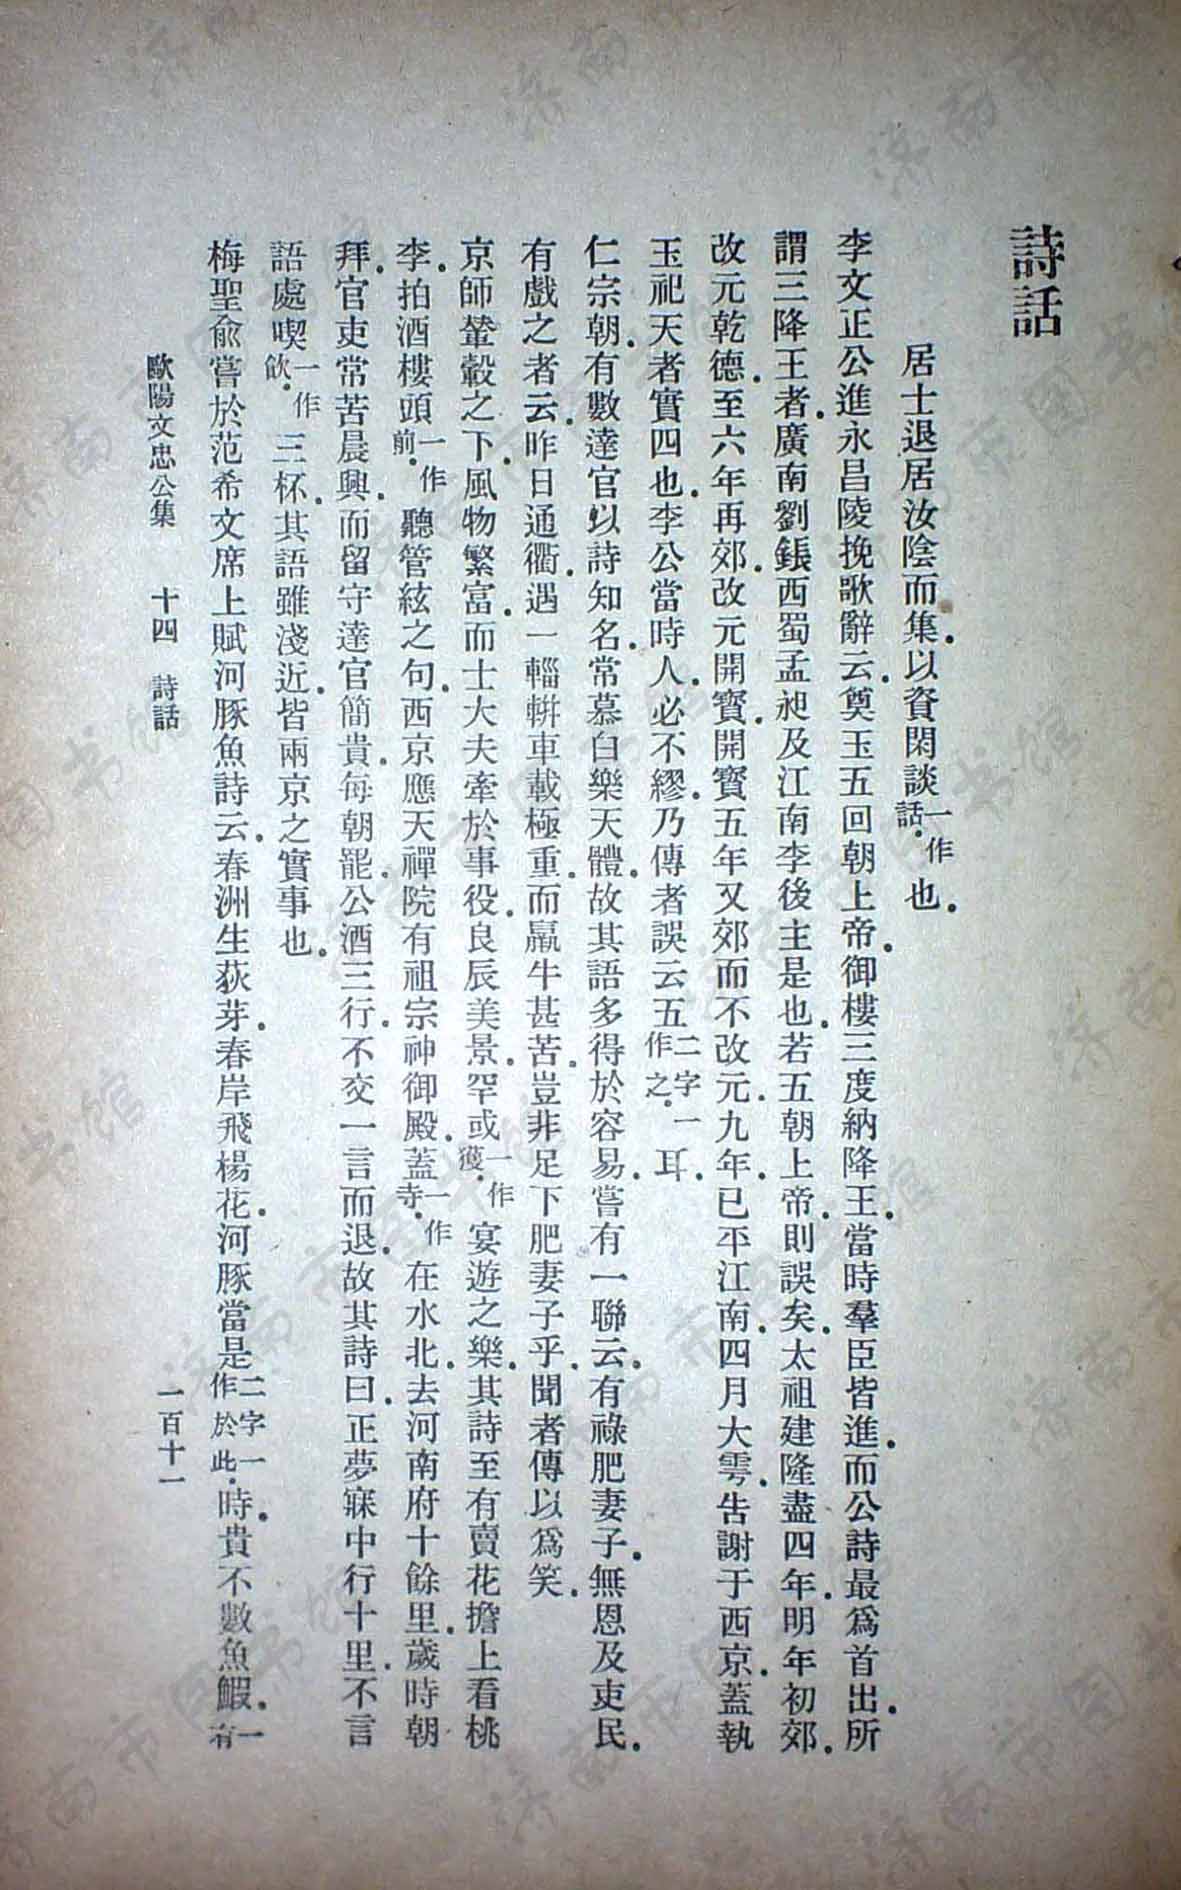 詩話
居士退居汝陰而集。以資閑談一作話。也。
李文正公進永昌陵挽歌辭云。奠玉五回朝上帝。御樓三度納降王。當時羣臣皆進。而公詩最爲首出。所
謂三降王者。廣南劉鋹西蜀孟昶及江南李後主是也。若五朝上帝。則誤矣。太祖建隆盡四年。明年初郊。
改元乾德。至六年再郊。改元開寳。開寳五年又郊而不改元。九年。已平江南。四月大雩。告謝于西京。蓋執
玉祀天者實四也。李公當時人。必不繆。乃傳者誤云五二字一作之。耳。
仁宗朝。有數達官以詩知名。常慕白樂天體。故其語多得於容易。嘗有一聯云。有祿肥妻子。無恩及吏民。
有戲之者云。昨日通衢。遇一輜輧車載極重。而羸牛甚苦。豈非足下肥妻子乎。聞者傳以爲笑。
京師輦轂之下。風物繁富。而士大夫牽於事役。良辰美景。罕或一作獲。宴遊之樂。其詩至有賣花擔上看桃
李。拍酒樓頭一作前。聽管絃之句。西京應天禪院有祖宗神御殿。蓋一作寺。在水北。去河南府十餘里。歲時朝
拜。官吏常苦晨興。而留守達官簡貴。每朝罷。公酒三行。不交一言而退。故其詩曰。正夢寐中行十里。不言
語處喫一作飲。三杯。其語雖淺近。皆兩京之實事也。
梅聖俞嘗於范希文席上賦河豚魚詩云。春洲生荻芽。春岸飛楊花。河豚當是二字一作於此。時。貴不數魚鰕。一有
歐陽文忠公集 十四 詩話 一百十一
济南市图书馆